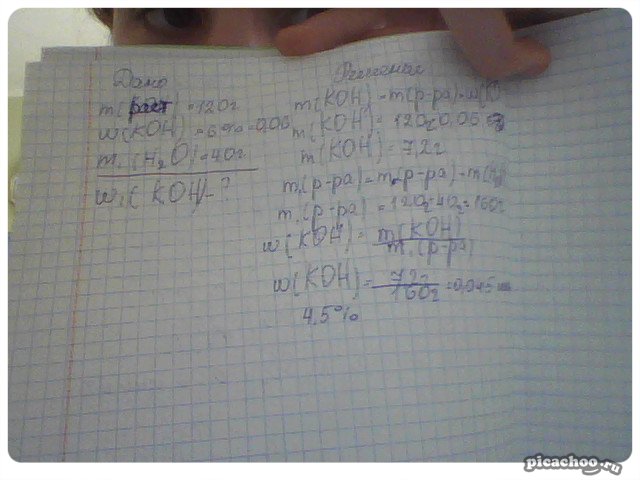 Дано
m(раст) = 120г
w(KOH) = 6% = 0,06
m₁(H₂O) = 40г
w₁(KOH) - ?
Решение
m(KOH) = m(р-ра) · w(
m(KOH) = 120г · 0,06
m(KOH) = 7,2г
m₁(р-ра) = m(р-ра) + m(H₂
m₁(р-ра) = 120г + 40г = 160г
w₁(KOH) = m(KOH)
m₁(р-ра)
w(KOH) = 7,2г
160г = 0,045 =
4,5%
picachoo.ru